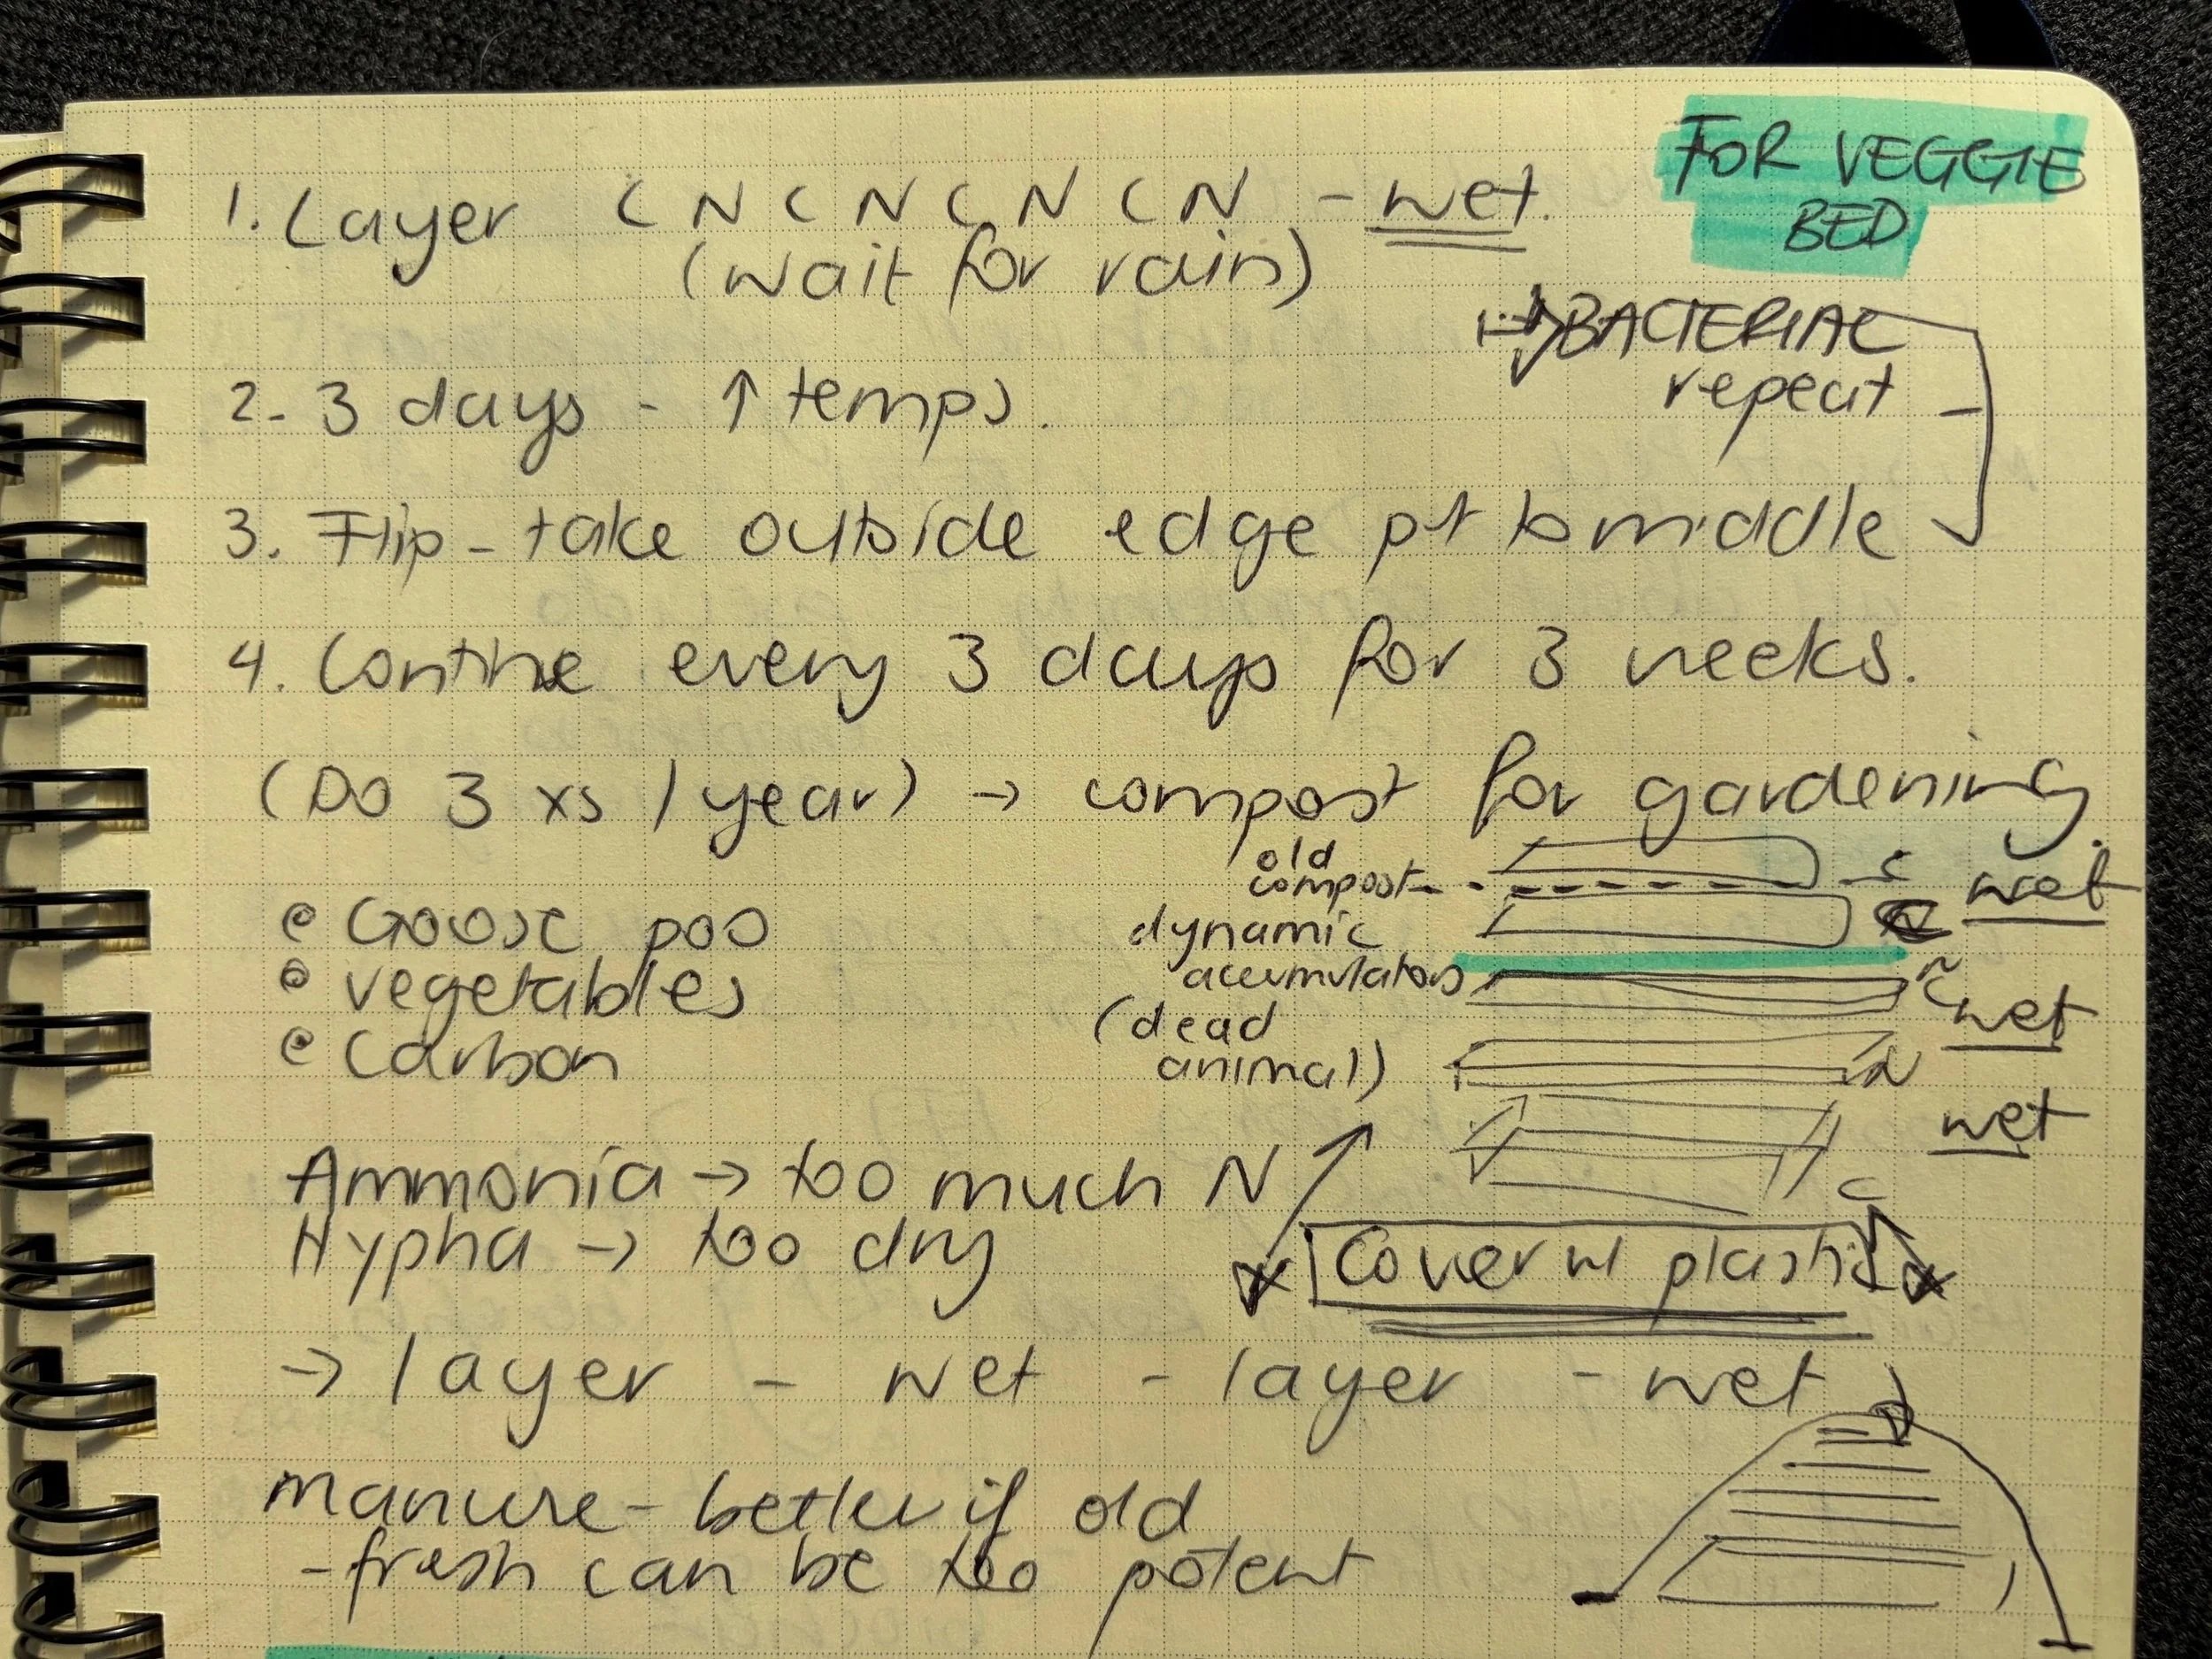 FOR VEGGIE
BED
1. Layer C N C N C N C N - wet.
(wait for rain)
BACTERIAL
repeat
2- 3 days - ↑ temps.
3. Flip - take outside edge pt to middle
4. Contine every 3 days for 3 weeks.
(Do 3 xs / year) → compost for gardening.
old
compost
C wet
dynamic
accumulators
N
C wet
(dead
animal)
N
wet
C
• Goose poo
• vegetables
• Carbon
Ammonia → too much N
Hypha → too dry
Cover w/ plastic
→ layer - wet - layer - wet
manure - better if old
- fresh can be too potent